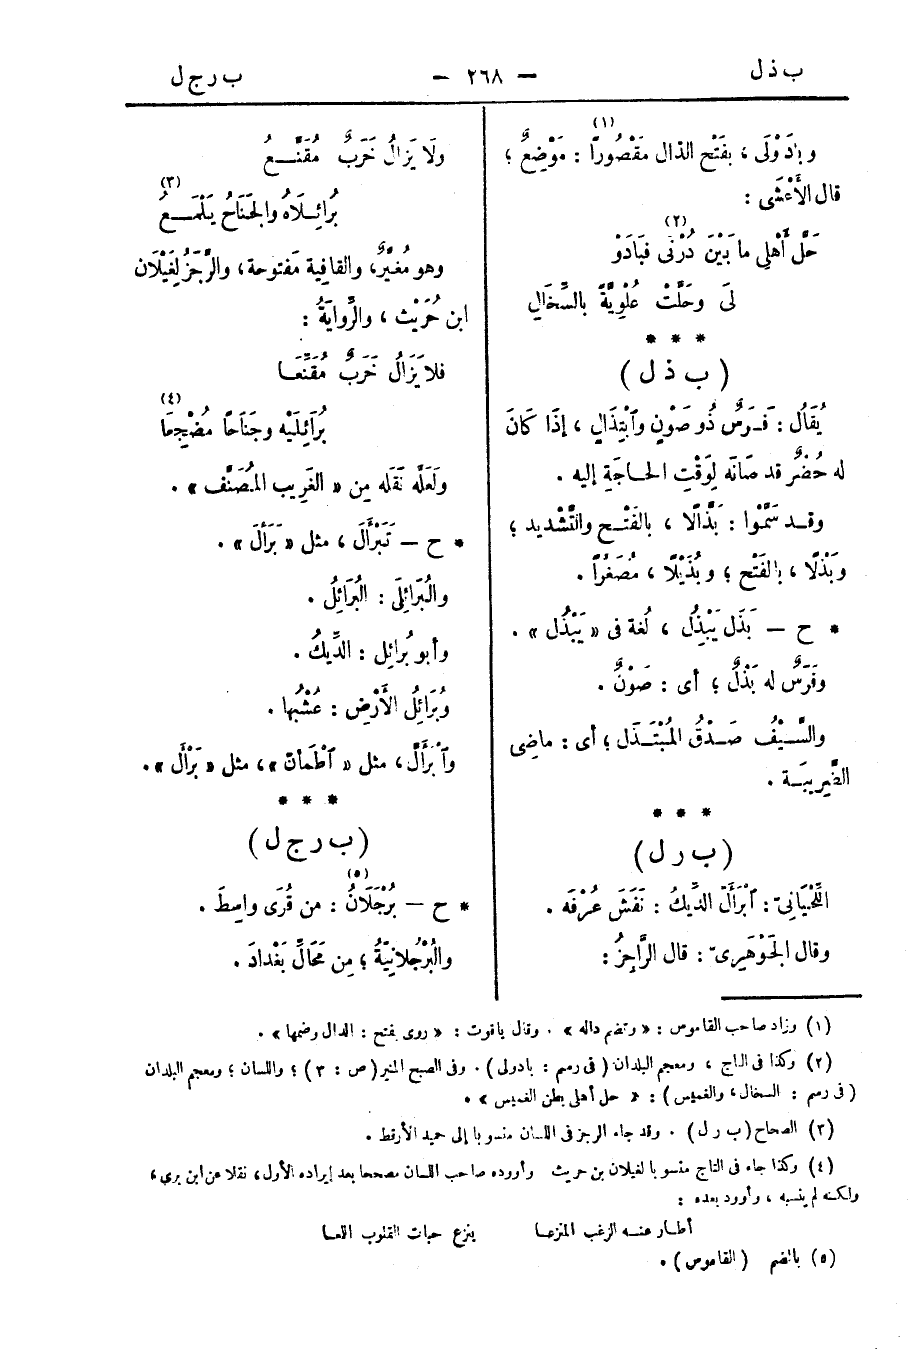 ب ذ ل — ٢٦٨ — ب ر ج ل
وبَادَوْلَى ، بفَتْح الذال مَقْصُوراً (١) : مَوْضِعٌ ؛
قال الأَعْشَى :
حَلَّ أَهْلِى ما بَيْنَ دُرْنَى (٢) فبَادَوْ
لَى وحَلَّتْ عُلْوِيَّةً بالسِّخَالِ
* * *
( ب ذ ل )
يُقَال : فَـرَسٌ ذُو صَوْنٍ وٱبْتِذَالٍ ، إذَا كَانَ
له حُضْرٌ قد صَانَه لِوَقْتِ الحـاجَةِ إليه .
وقـد سَمَّوْا : بَذَّالًا ، بالفَتْـح والتَّشْديد ؛
وبَذْلًا ، بالفَتْح ؛ وبُذَيْلًا ، مُصَغَّراً .
* ح – بَذَل يَبْذِلُ ، لُغة فى « يَبْذُل » .
وفَرَسٌ له بَذْلٌ ؛ أى : صَوْنٌ .
والسَّـيْفُ صَـدْقُ المُبْتَـذَل ؛ أى : ماضِى
الضَّرِيبَـة .
* * *
( ب ر ل )
اللِّحْيَانىّ : ٱبْرَأَلَّ الدِّيكُ : نَفَشَ عُرْفَه .
وقال الجَوْهَرِىّ : قال الرَّاجِزُ :
ولَا يَزالُ خَرَبٌ مُقَنَّـــعُ
بُرَائِـلَاهُ والجَنَاحُ يَلْمَـــعُ (٣)
وهو مُغَيَّرٌ، والقافِية مَفتوحة، والرَّجَزُ لغَيْلَان
ابن حُرَيْث ، والرِّوايَةُ :
فلا يَزَالُ خَرَبٌ مُقَنِّعَـا
بُرَائِلَيْه وجَنَاحاً مُضْجَعَا (٤)
ولَعَلَّه نَقَله مِن « الغَرِيب المُصَنَّف » .
* ح – تَبَرْأَلَ ، مثل « بَرْأَلَ » .
والبُرَائِلَى : البُرَائِلُ .
وأبو بُرائِل : الدِّيكُ .
وبُرَائِلُ الأَرْضِ : عُشْبُها .
وٱبْرَأَلَّ ، مثل « ٱطْمَأَنَّ »، مثل « بَرْأَل ».
* * *
( ب ر ج ل )
* ح – بُرْجَلَانُ (٥) : من قُرَى واسِطَ .
والبُرْجُلانِيَّةُ ؛ مِن مَحَالِّ بَغْدادَ .
(١) وزاد صاحب القاموس : « وتضم داله » . وقال ياقوت : « روى بفتح : الدال وضمها » .
(٢) وكذا فى التاج ، ومعجم البلدان ( فى رسم : بادولى ) . وفى الصبح المنير ( ص : ٣ ) ؛ واللسان ؛ ومعجم البلدان
( فى رسم : السخال، والغميس ) : « حل أهلى بطن الغميس » .
(٣) الصحاح ( ب ر ل ) . وقد جاء الرجز فى اللسان منسوبا إلى حميد الأرقط .
(٤) وكذا جاء فى التاج منسوبا لغيلان بن حريث وأورده صاحب اللسان مصححا بعد إيراده الأول، نقلا عن ابن بري ،
ولكنه لم ينسبه ، وأورد بعده :
أطـار عنـه الزغب المنزعـا ينزع حبات القلوب اللعـا
(٥) بالضم ( القاموس ) .